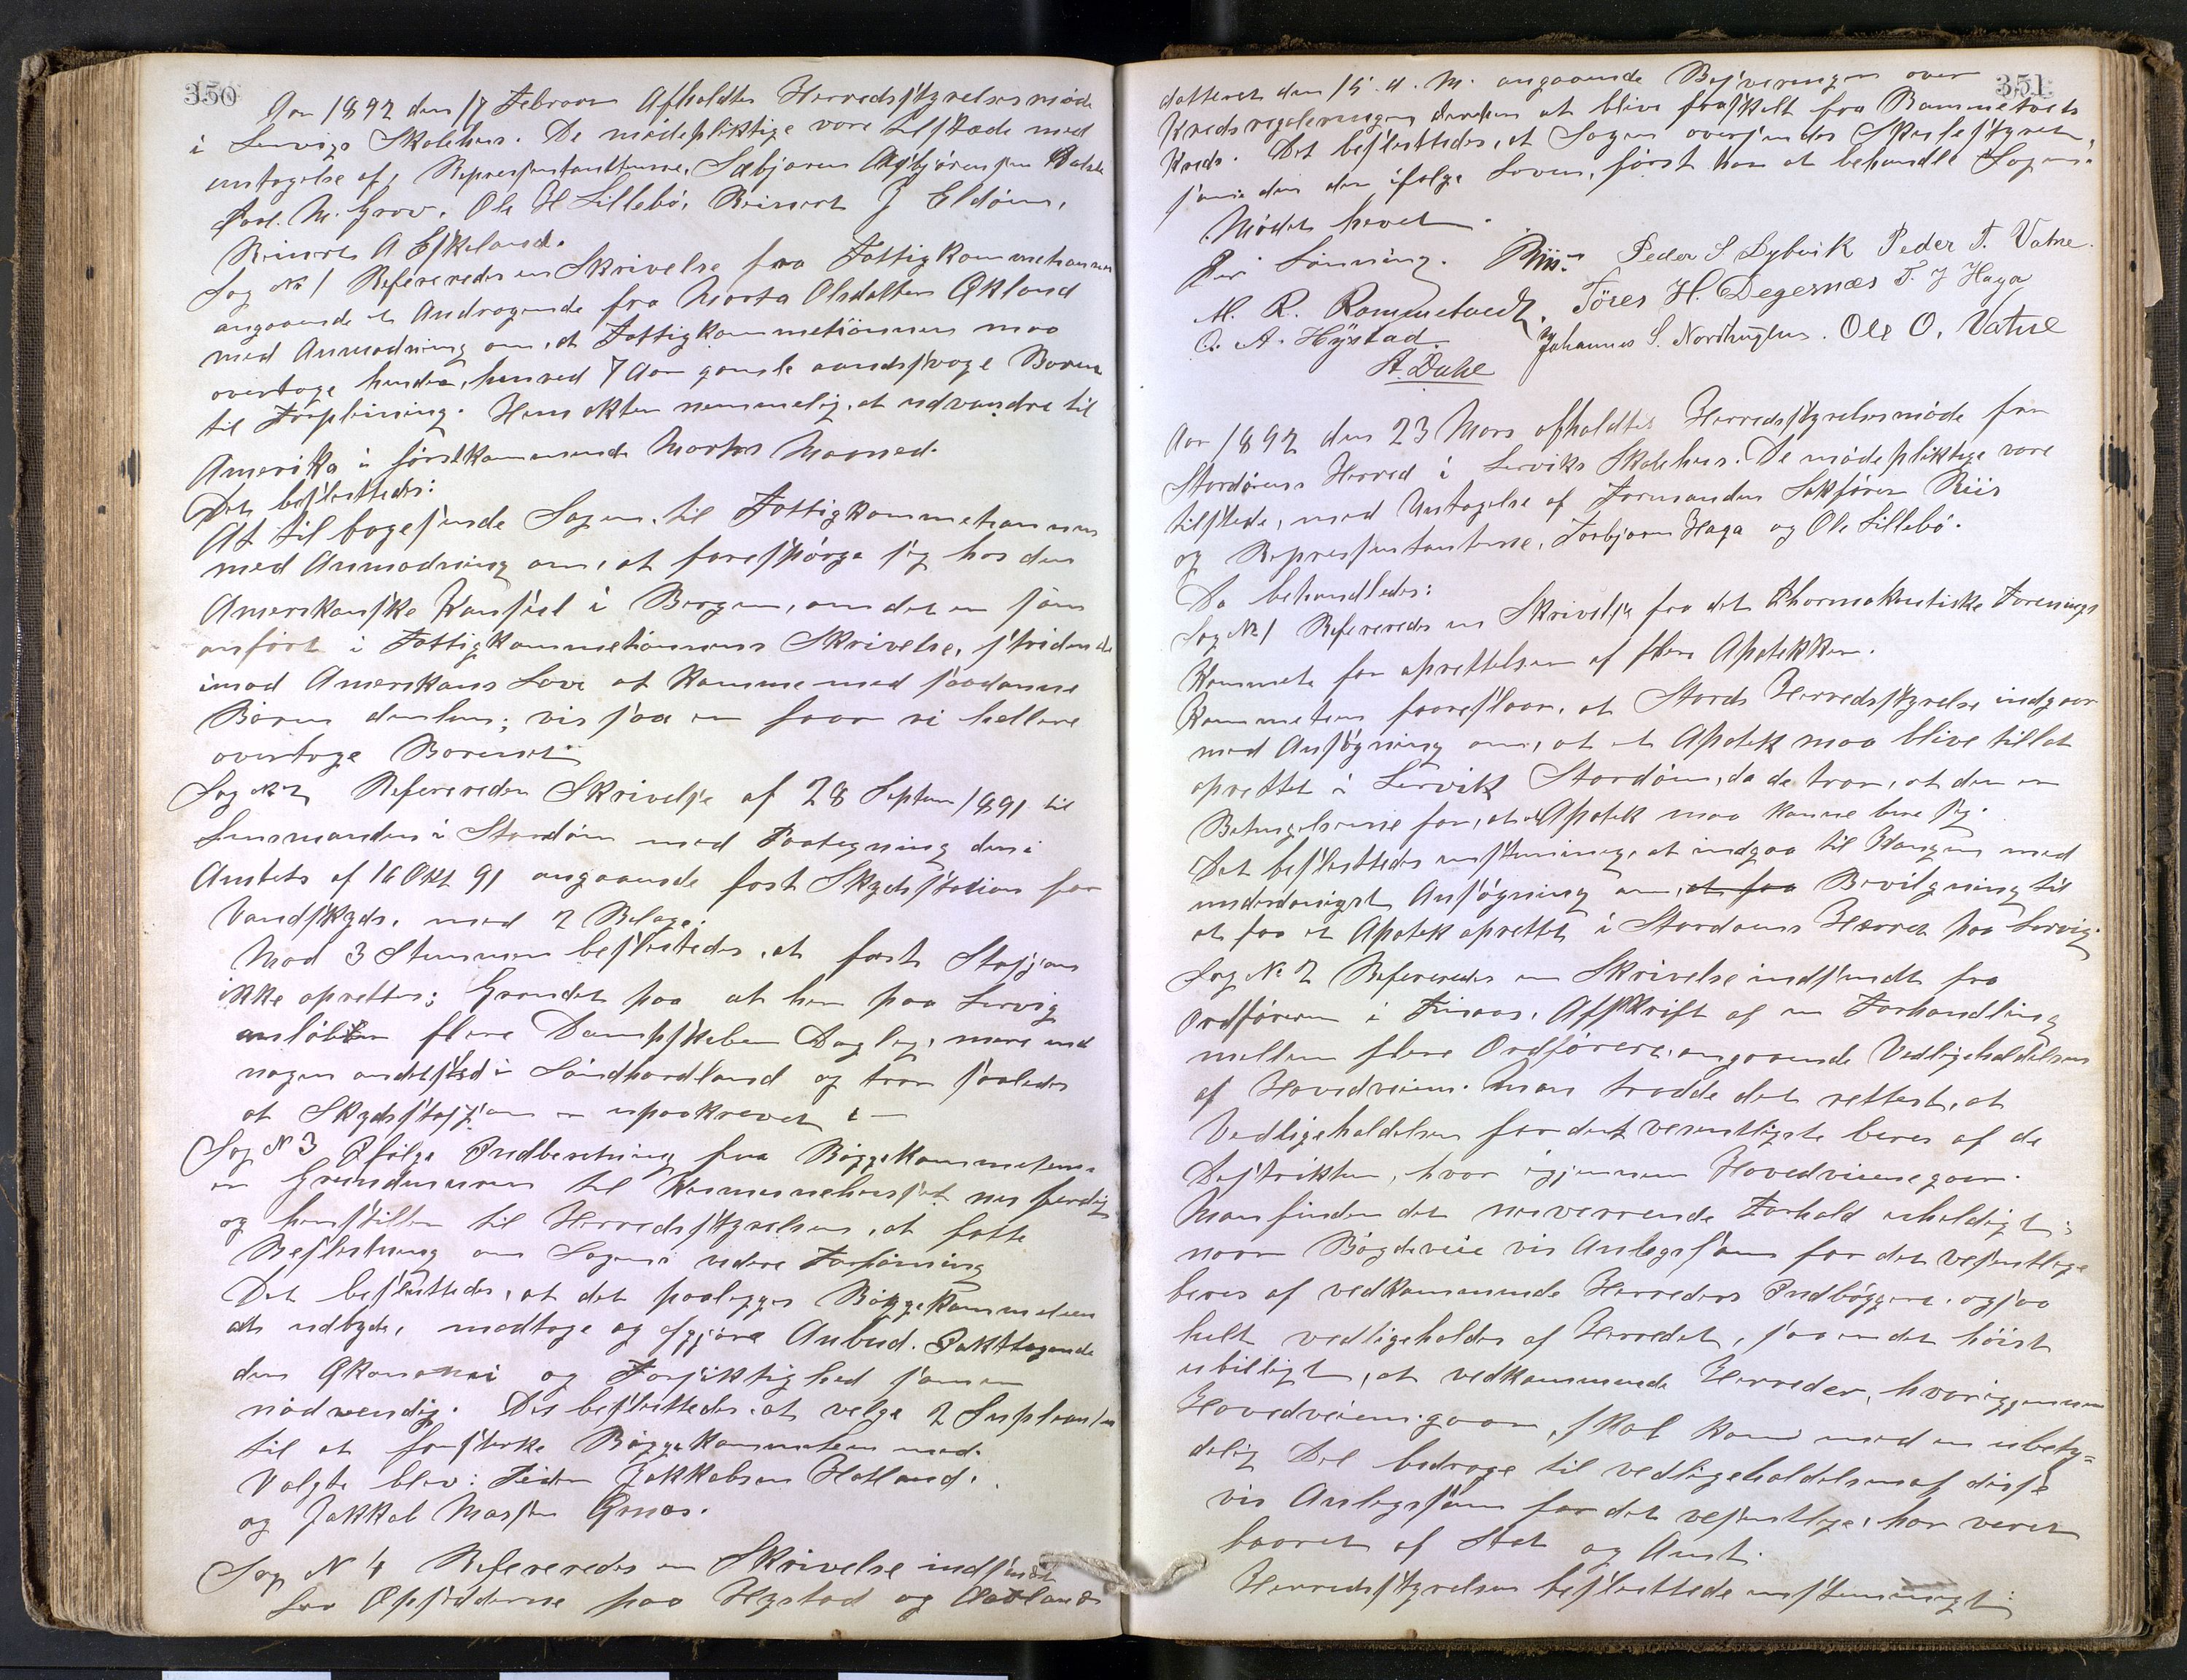 350
Aar 1892 den 17 Februar Afholdtes Herredsstyrelsesmøde
i Lervigs Skolehus. De mødepliktige vare tilstæde med
untagelse af, Representantterne, Sæbjoren Asbjørensen
M. Grov. Ole H Lillebø, Reinert J Eldøen.
Reinert A Eskeland.
Sag № 1 Refereredes en Skrivelse fra Fattigkommetionen
angaaende et Andragende fra Marta Olsdatter Økland
med Anmodning om, at Fattigkommetiønnen maa
overtage hendes, henved 7 Aar gamle aandssvage Baren
til Forpleining. Hun akter nemmelig, at udvandre til
Amerika i førstkommende Martos Maaned.
Det besluttedes:
At til bagesende Sagen, til Fattigkommetionnen
med Anmodning om, at forespørge sig hos den
Amerkanske Konsul i Bergen, om det er som
anført i Fattigkommetiønnens Skrivelse, stridende
imod Amerikans Love at komme med saadanne
Børen derhen; vis saa er faar vi hellere
overtage Barenet
Sag № 2 Refereredes Skrivelse af 28 Septem 1891 til
Lensmanden i Stordøen med Paategning den i
Amtets af 16 Okt 91 angaaende fast Skydsstation for
Vandskyds, med 2 Belage.
Mod 3 Stemmer besluttedes, at fast Stasjon
ikke oprettes; Grundet paa at her paa Lervig
anløber flere Dampskebe Daglig, mere end
nogen andetsted i Søndhordland og tror saaledes
at Skydsstasjon er upaakrevet
Sag № 3 Ifølge Indberetning fra Byggekommeteen
er Grundmuren til Kommunehuset nu ferdig
og henstiller til Herredsstyrelsen, at fatte
Beslutning om Sagens videre Forføining
Det besluttedes, at det paalegges Byggekommeteen
at udbyde, modtage og afgjøre Anbud. Iakttagende
den Økonomi og Forsiktighed som er
nødvendig. Det besluttedes at velge 2 Supleanter
til at forsterke Byggekommeteen med.
Valgte blev: Peder Jakkobsen Hatland.
og Jakkob Massen
Sag № 4 Refereredes en Skrivelse indsendt
fra Opsidderne paa Hystad og Aadland
351
datteret den 15 d. M. angaaende Besveringer over
Kredsreguleringen derhen at blive fraskelt fra Rommetveits
Kreds. Det besluttedes, at Sagen oversendes Skolestyret,
som den der ifølge Loven, først har at behandle Sagen.
Mødet hevet.
Per Lønning. Riis. Peder S. Dybvik Peder T. Vatne.
M. R. Rommetvedt. Tøres H. Degernæs T. J Haga
O. A. Hystad. Johannes S. Nordhuglen. Ole O. Vatne
A. Dahl
Aar 1892 den 23 Mars afholdtes Herredsstyrelsesmøde for
Stordøens Herred i Lerviks Skolehus. De mødepliktige vare
tilstede, med Untagelse af Formanden Sakfører Riis
og Representanterne, Torbjoren Haga og Ole Lillebø.
Da behandledes:
Sag № 1 Refereredes en Skrivelse fra det Pharmakeutiske Forenings
Kommete for oprettelsen af flere Apotekker.
Kommeteen foreslaar, at Stords Herredsstyrelse indgaar
med Ansøgning om, at et Apotek maa blive tillat
oprettet i Lervik Stordøen, da de tror, at der er
Betingelserne for, at et Apotek maa kunne bere sig.
Det besluttedes enstemmig, at indgaa til Kongen med
underdanigst Ansøgning om, at faa Bevilgning til
at faa et Apotek oprettet i Stordøens Herred paa Lervig.
Sag № 2 Refereredes en Skrivelse indsendt fra
Ordføreren i Finaas. Affskrift af en Forhandling
mellem flere Ordførere, angaaende Vedligeholdelsen
af Hovedveiene. Man trodde det rettest, at
Vedligeholdelsen for det vesentligste beres af de
Destrikter, hvor igjennem Hovedveiene gaar.
Man finder det nuverrende Forhold uheldigt;
naar Bygdeveie vis Anlegssom for det vesentlige
beres af vedkommende Herreders Indbyggere, ogsaa
helt vedligeholdes af Herredet, saa er det høist
ubilligt, at vedkommende Herreder, hvoriggennem
Hovedveiene gaar, skal kun med en ubety=
delig Del bedrage til vedligeholdelsen af disse
vis Anlegssom for det vesentlige, har veret
baaret af Stat og Amt.
Herredsstyrelsen besluttede enstemmigt: